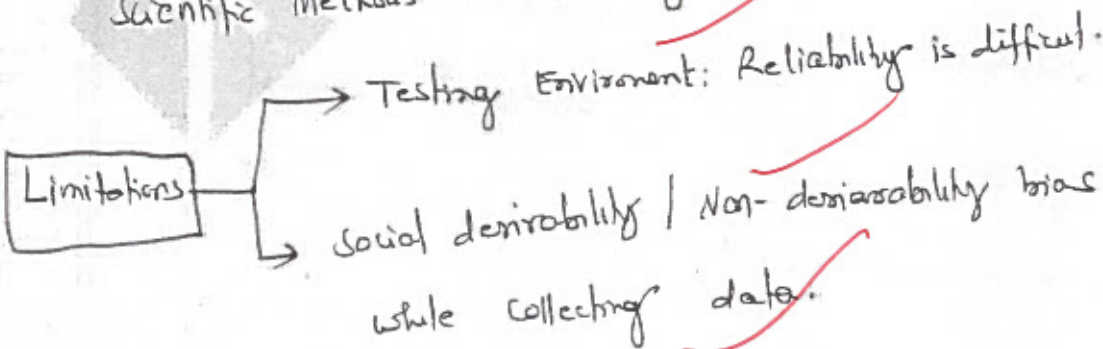 Scientific Methods
Testing Enviroment: Reliability is difficut.
Limitations
Social desirability / Non-desiarability bias
while collecting data.